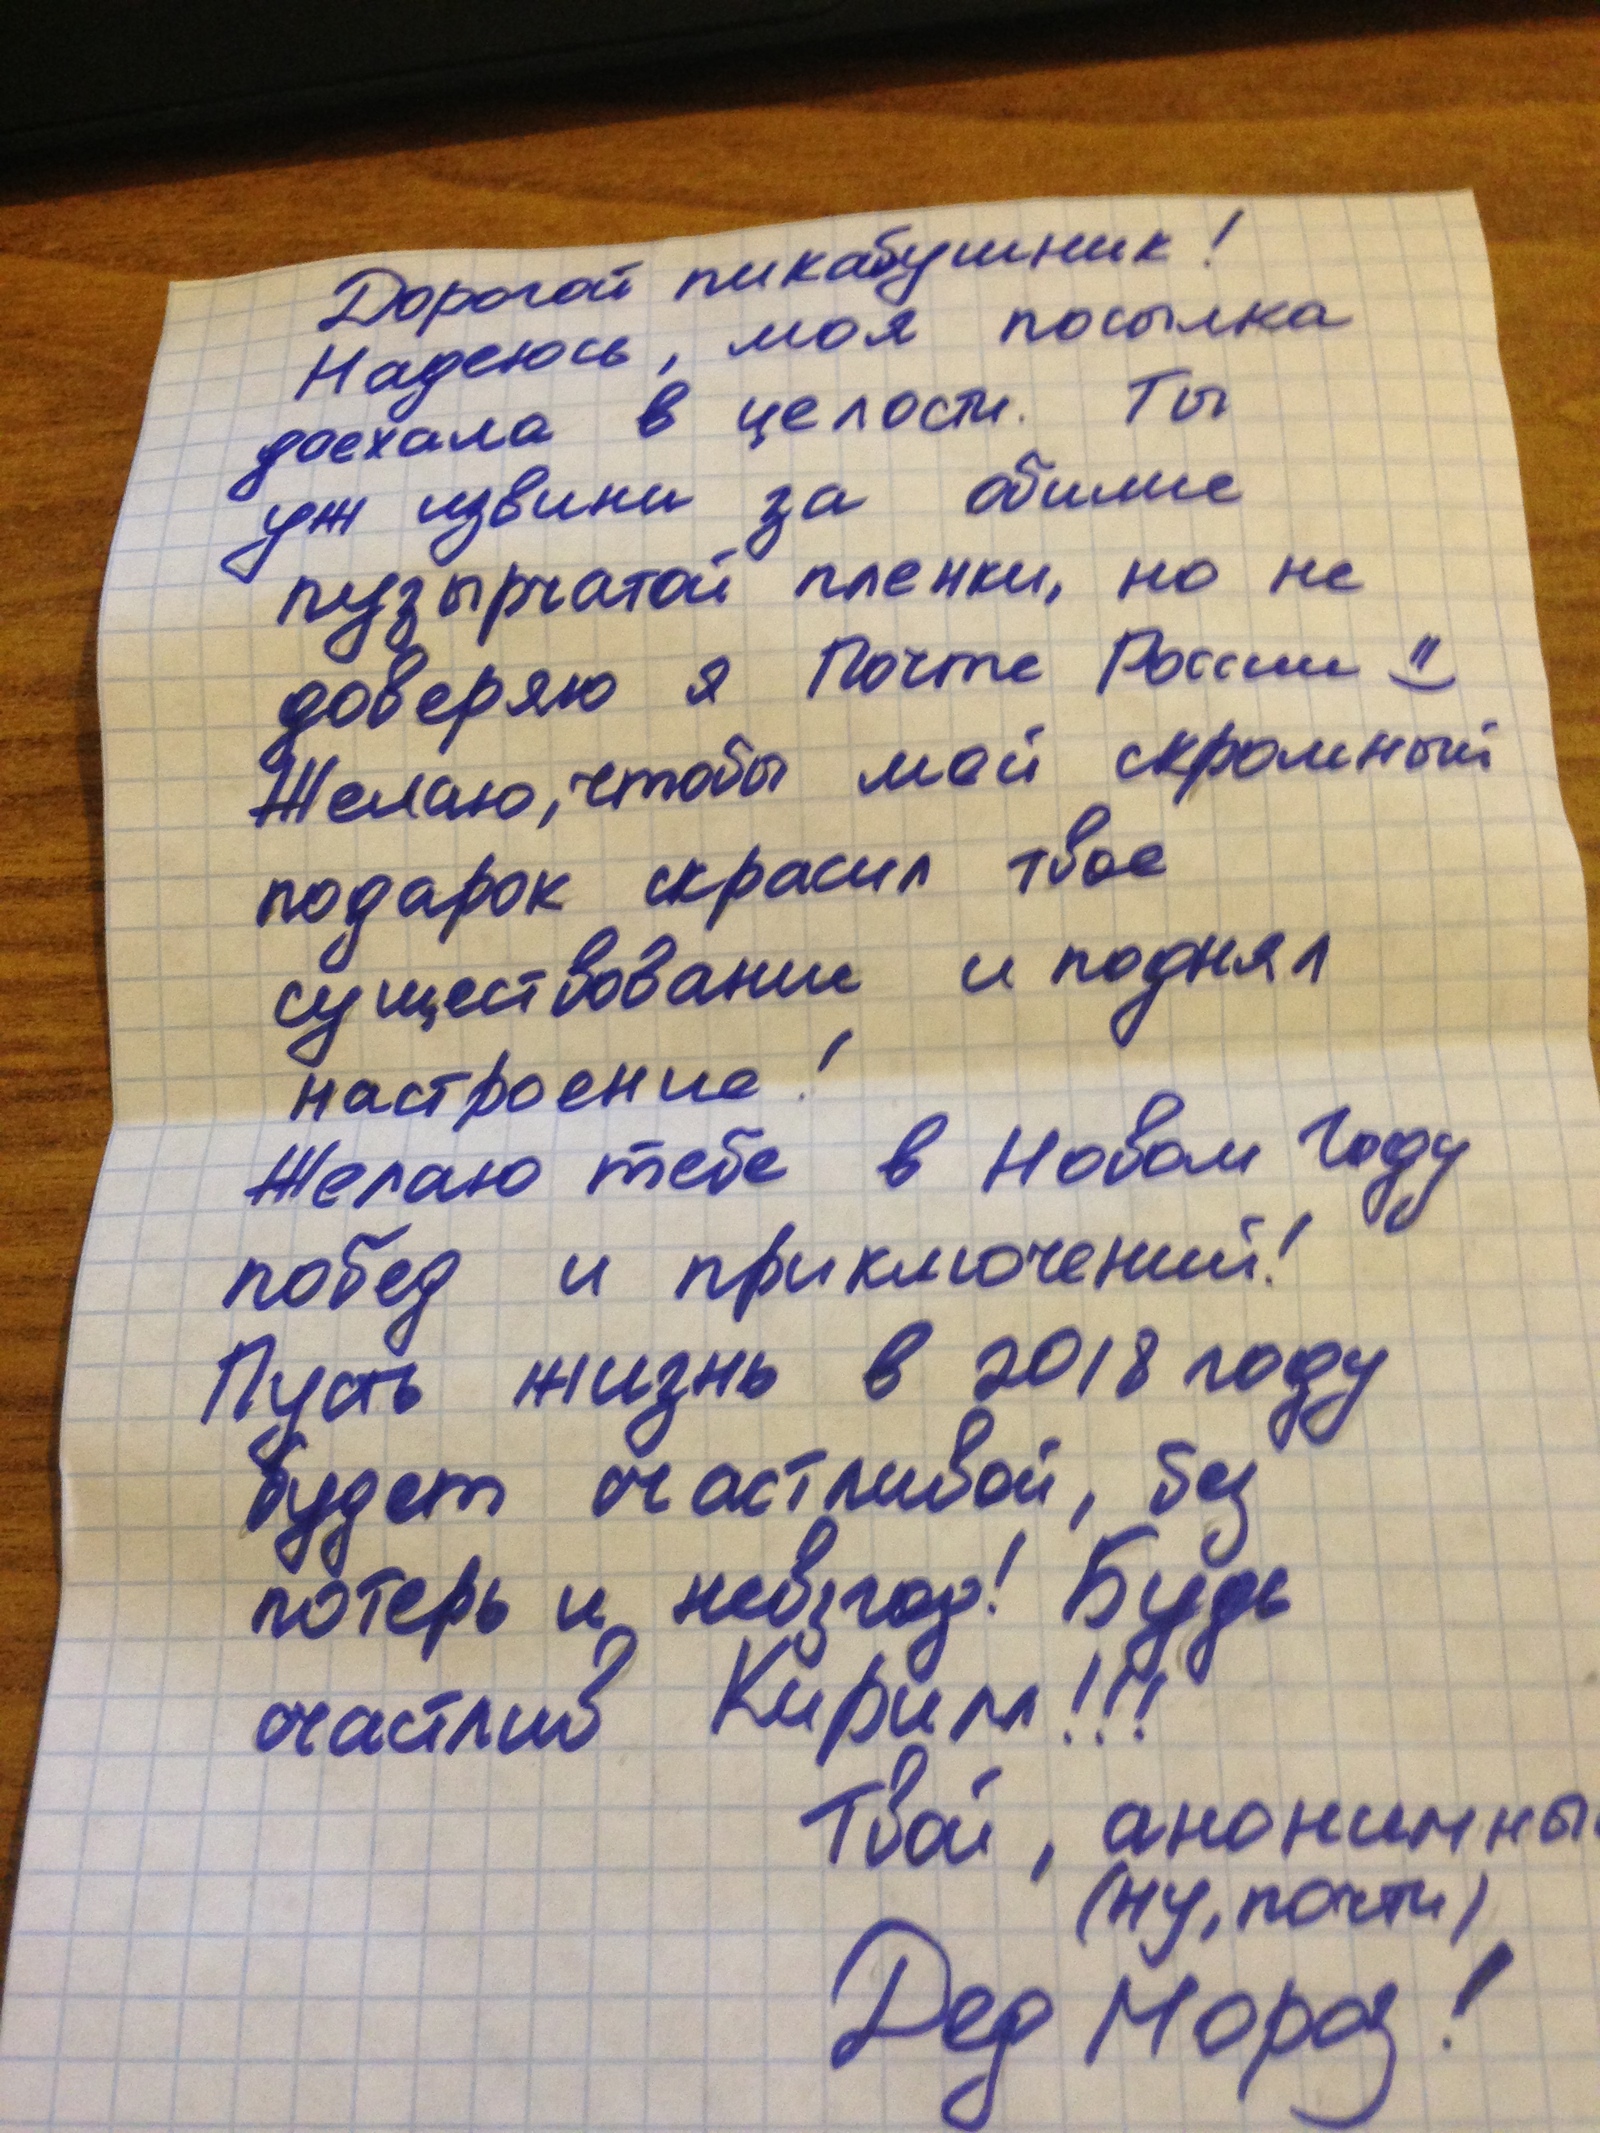 Дорогой пикабушник!
Надеюсь, моя посылка
доехала в целости. Ты
уж извини за обилие
пузырчатой пленки, но не
доверяю я Почте России
Желаю, чтобы мой скромный
подарок скрасил твое
существование и поднял
настроение!
Желаю тебе в Новом Году
побед и приключений!
Пусть жизнь в 2018 году
будет счастливой, без
потерь и невзгод! Будь
счастлив Кирилл!!!
Твой, анонимный
(ну, почти)
Дед Мороз!